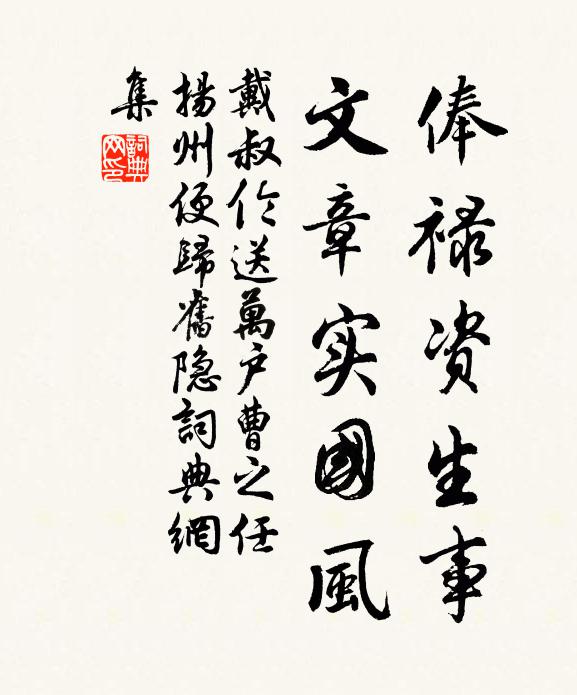 俸禄资生事
文章实國風
戴叔伦送萬户曹之任
揚州便歸舊隐詞典網
集
詞典
网印